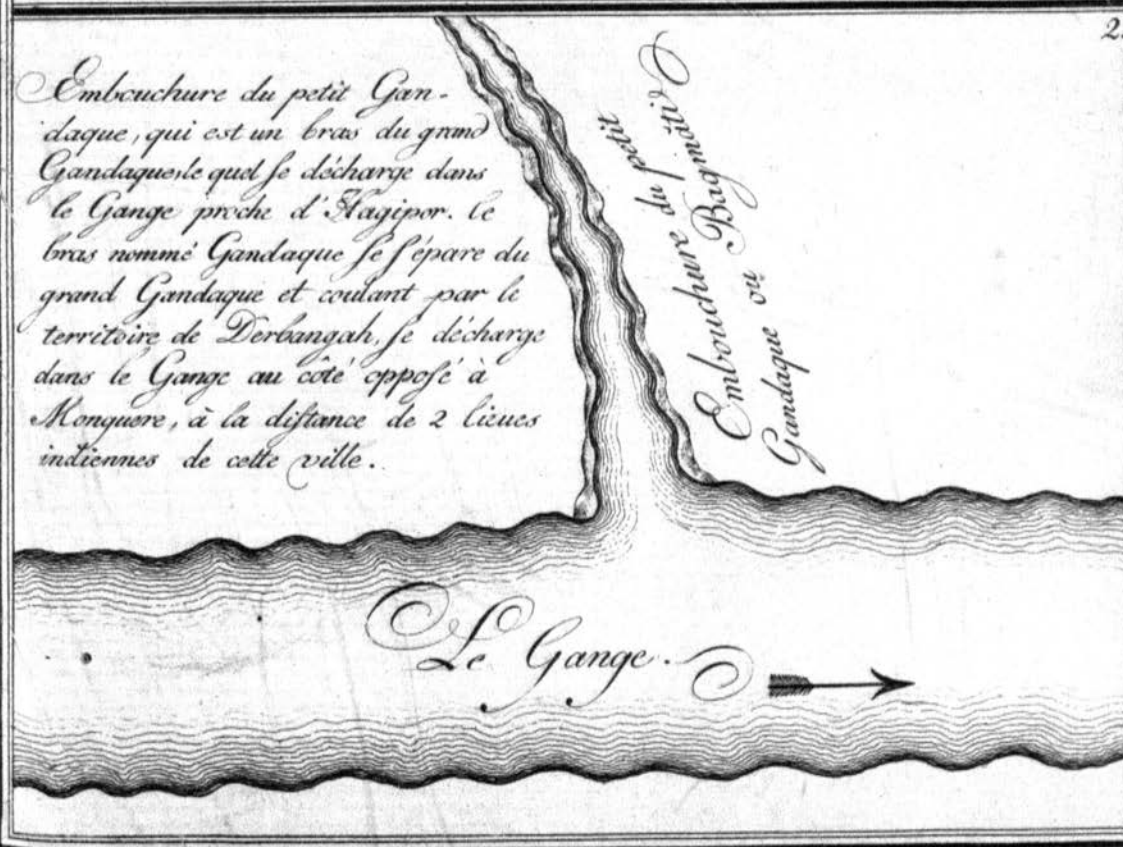 2.
Embouchure du petit Gan-
daque, qui est un bras du grand
Gandaque, le quel ſe décharge dans
le Gange proche d'Hagipor. le
bras nommé Gandaque ſe ſépare du
grand Gandaque et coulant par le
territoire de Derbangah, ſe décharge
dans le Gange au côté oppoſé à
Monguere, à la diſtance de 2 lieues
indiennes de cette ville.
Embouchure du petit
Gandaque où Bagmâti
Le Gange.